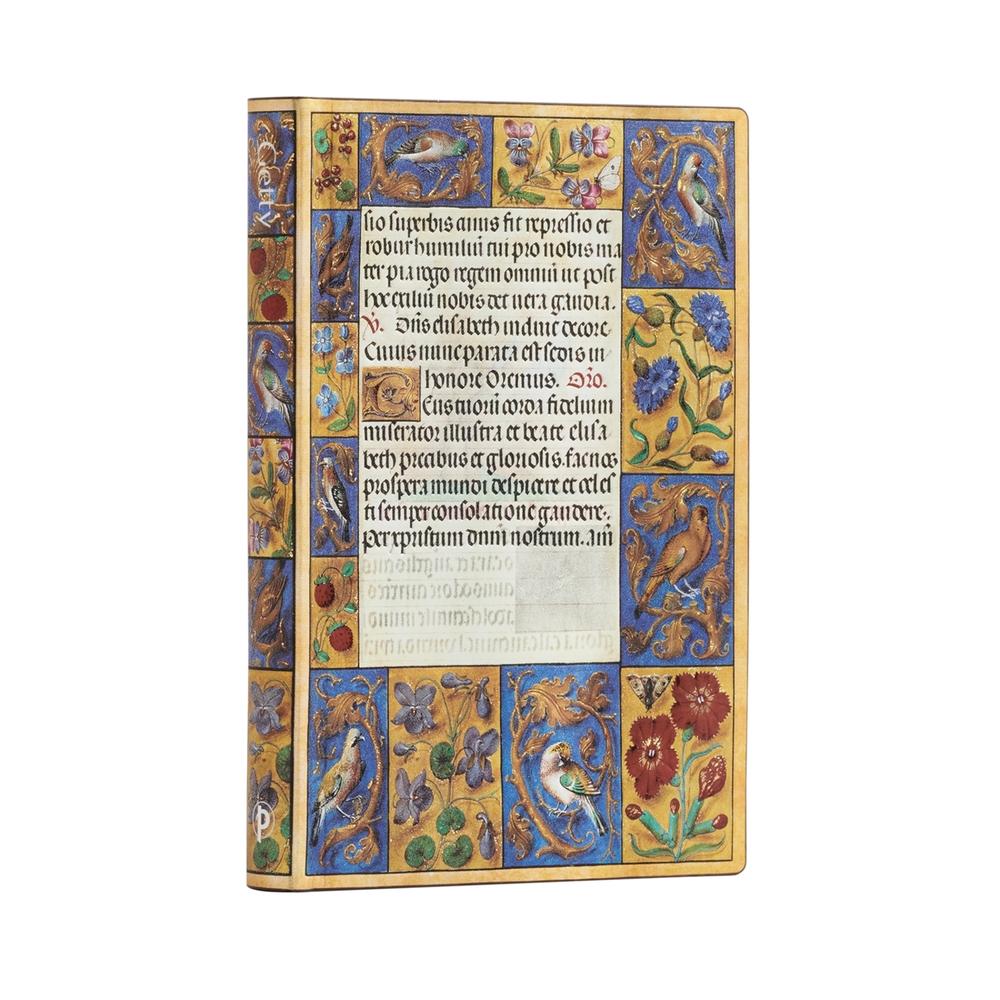 Getty
sio superbis animis fit repressio et
robur humiliū cui pro nobis ma
ter pia rogo regem omniū ut post
hoc exiliū nobis det vera gaudia.
V. Diis elisabeth induit decore
Cuius nunc parata est sedis in
honore Oremus. Oro.
Eus tuorū corda fidelium
miserator illustra et beate elisa
beth precibus et gloriosis. fac nos
prospera mundi despicere et celes
ti semper consolatione gaudere.
Per xpristum dnm nostrum. am
p